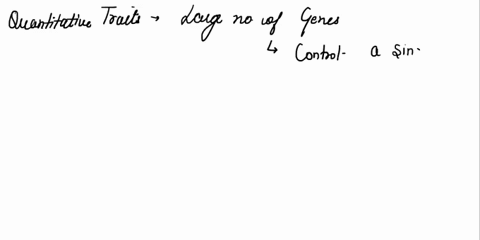 Quantitative Traits → Large no of Genes
↳ Control a Sin